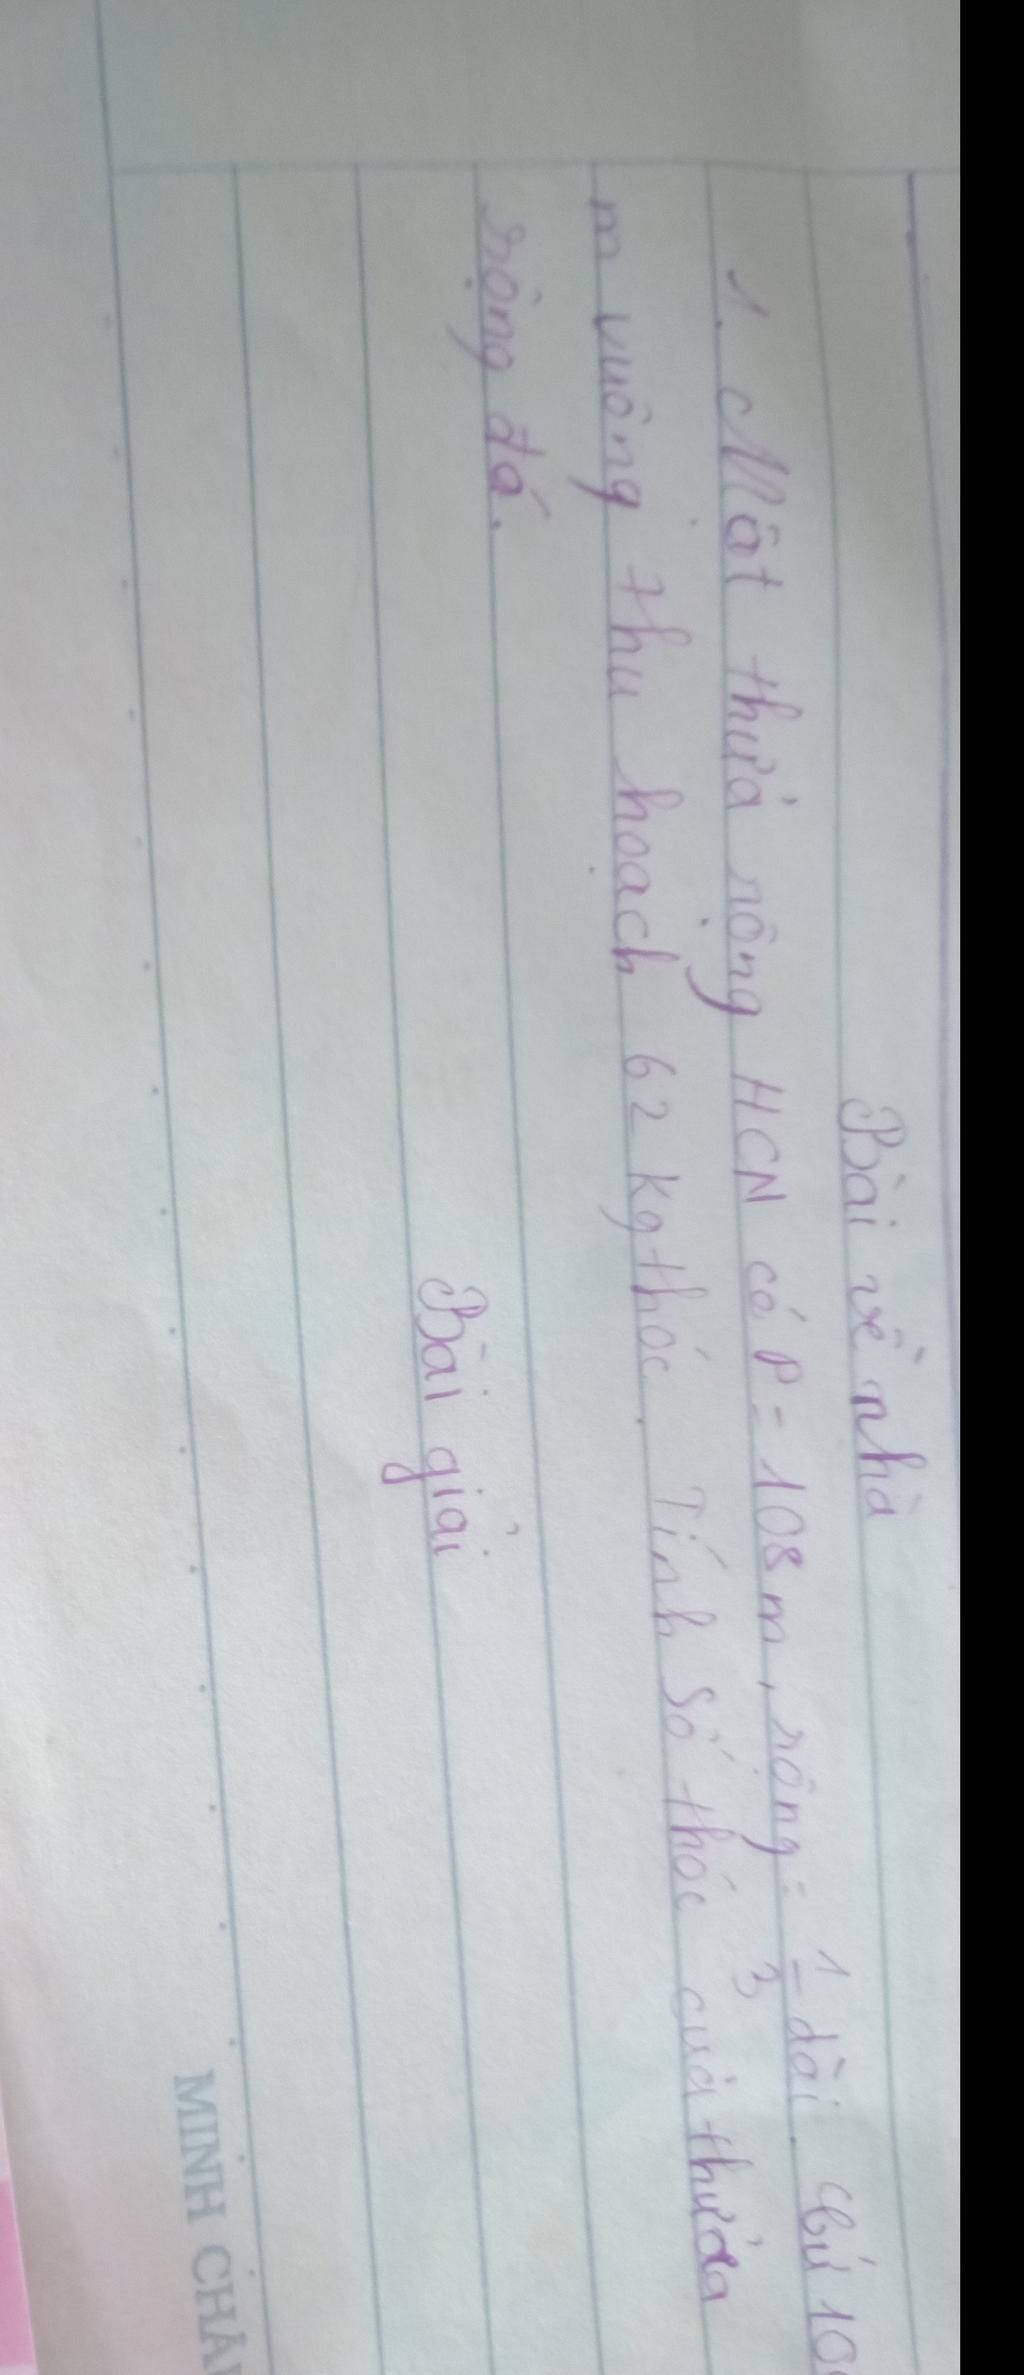 Bài về nhà
1. Một thửa rộng HCN có P = 108 m, rộng = 1/3 dài. Cứ
m vuông thu hoạch 62 kg thóc. Tính số thóc của thửa
rộng đó.
Bài giải
MINH CHÂU